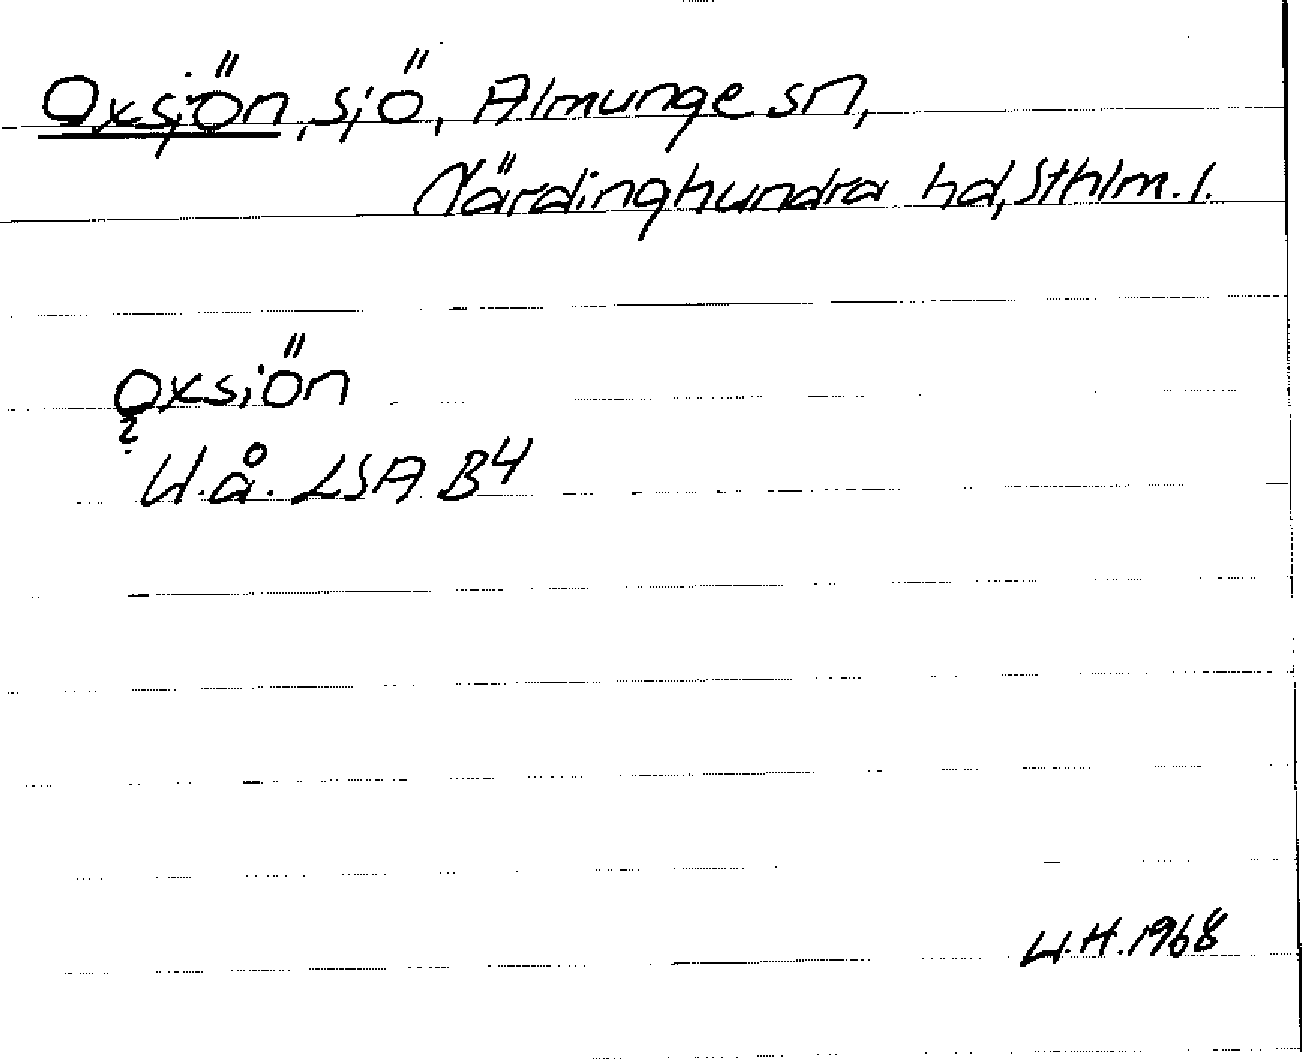 Oxsjön, sjö, Almunge sn,
Närdinghundra hd, Sthlm. l.
Oxsiön
?
U.å. LSA B4
U.H. 1968